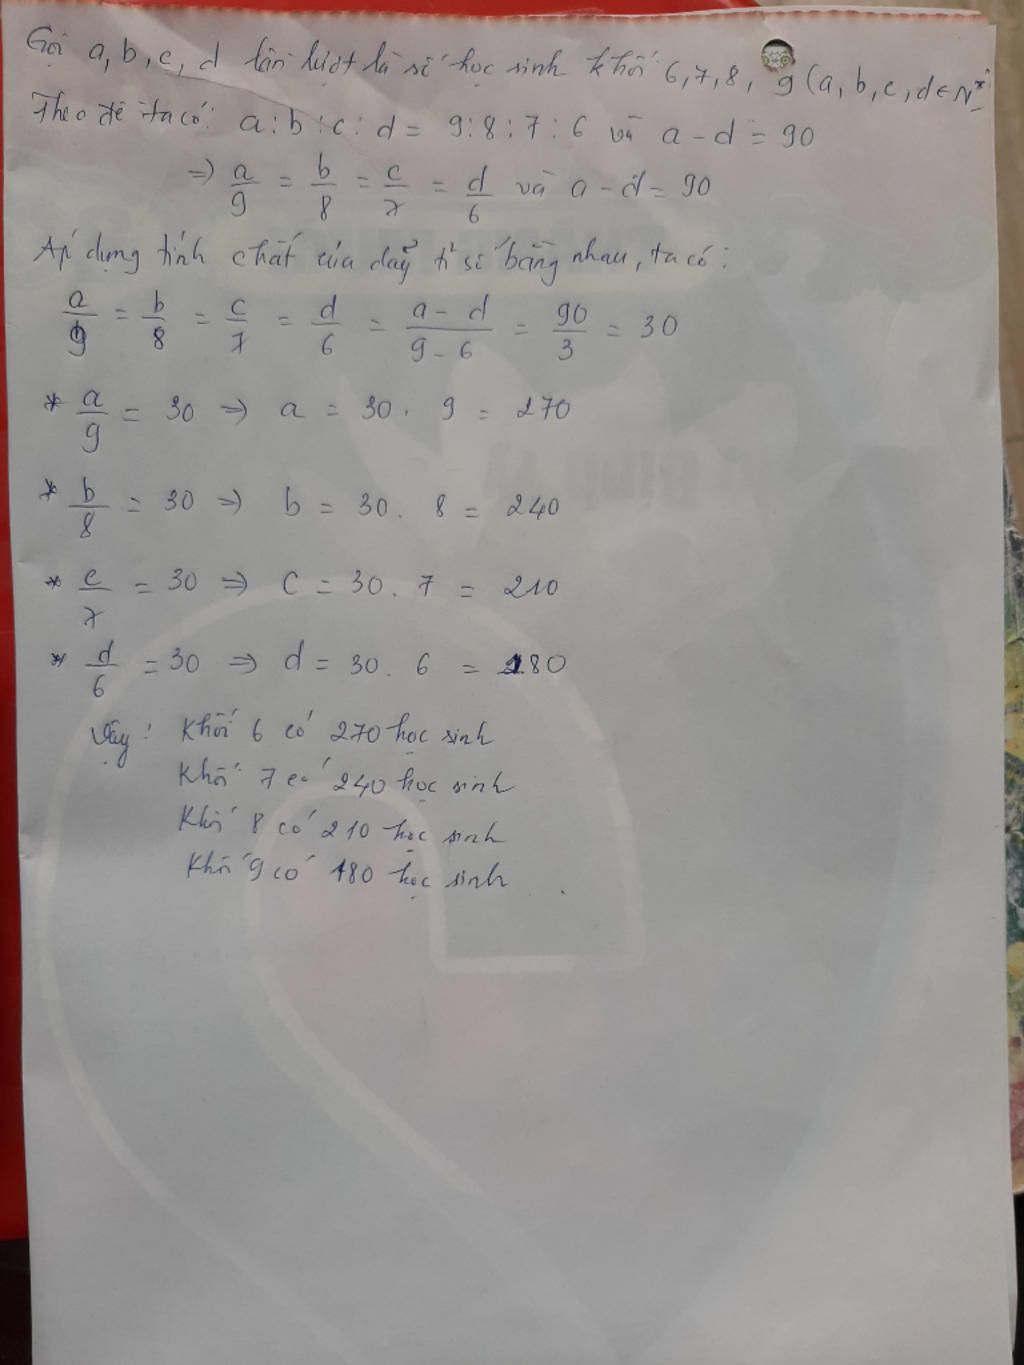 Gọi a, b, c, d lần lượt là số học sinh khối 6, 7, 8, 9 (a, b, c, d ∈ N*
Theo đề ta có: a : b : c : d = 9 : 8 : 7 : 6 và a - d = 90
=> a/9 = b/8 = c/7 = d/6 và a - d = 90
Áp dụng tính chất của dãy tỉ số bằng nhau, ta có:
a/9 = b/8 = c/7 = d/6 = (a - d)/(9 - 6) = 90/3 = 30
* a/9 = 30 => a = 30 . 9 = 270
* b/8 = 30 => b = 30 . 8 = 240
* c/7 = 30 => c = 30 . 7 = 210
* d/6 = 30 => d = 30 . 6 = 180
Vậy : Khối 6 có 270 học sinh
Khối 7 có 240 học sinh
Khối 8 có 210 học sinh
Khối 9 có 180 học sinh .